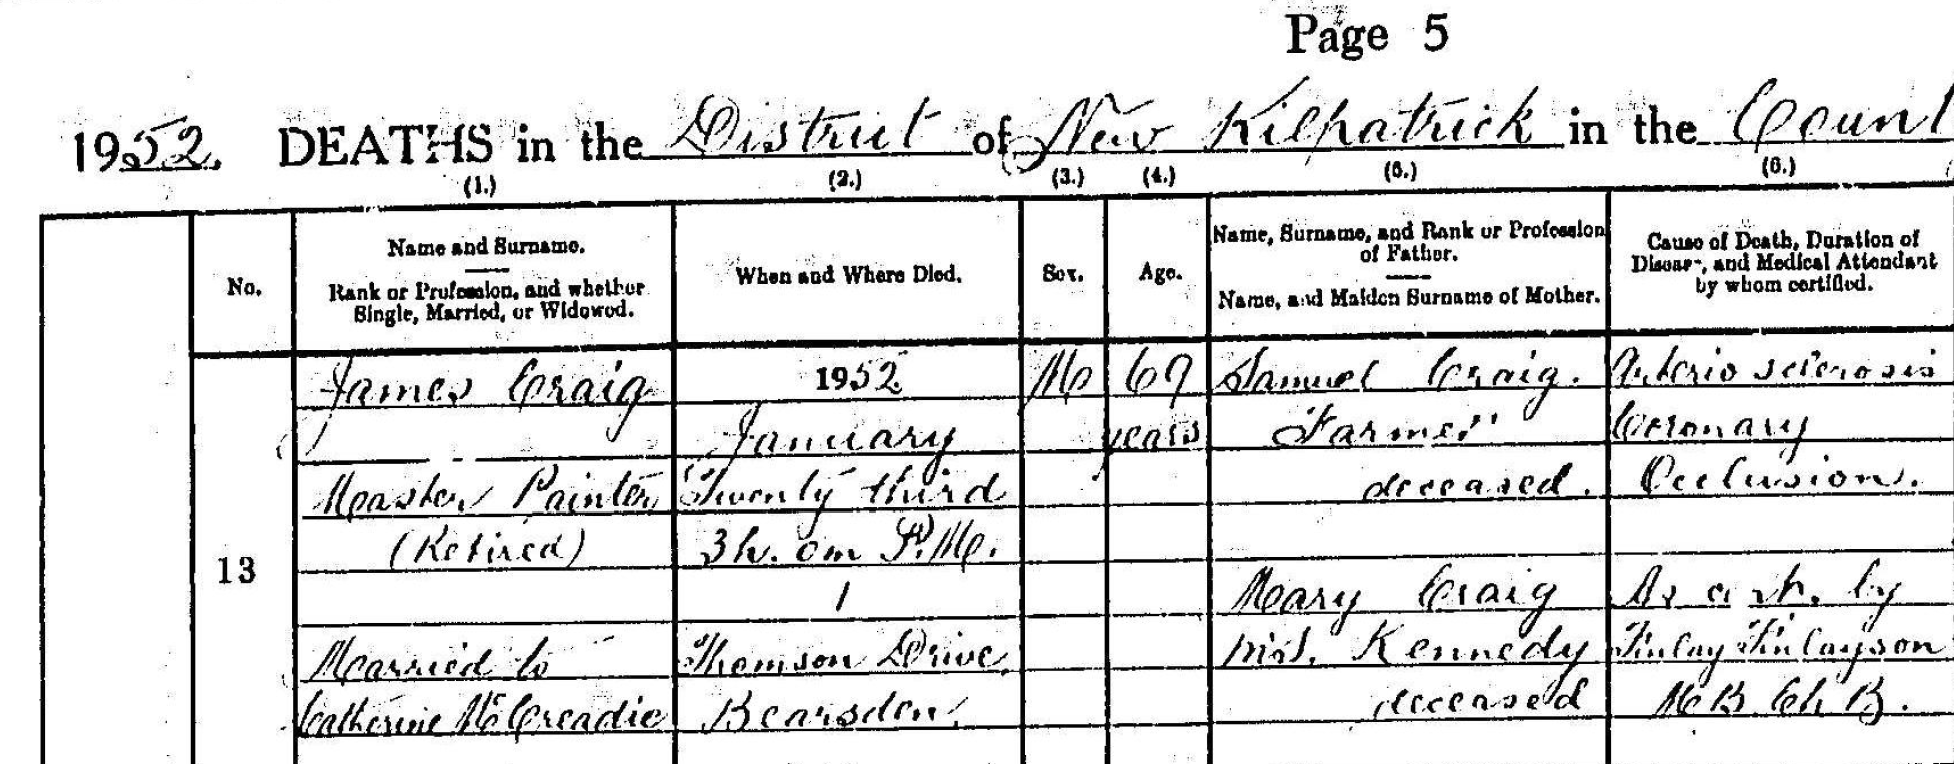 Page 5
1952. DEATHS in the District of New Kilpatrick in the Count
(1.) (2.) (3.) (4.) (5.) (6.)
No.
Name and Surname.
Rank or Profession, and whether
Single, Married, or Widowed.
When and Where Died.
Sex.
Age.
Name, Surname, and Rank or Profession
of Father.
Name, and Maiden Surname of Mother.
Cause of Death, Duration of
Disease, and Medical Attendant
by whom certified.
13
James Craig
Master Painter
(Retired)
Married to
Catherine McCreadie
1952
January
Twenty third
3h. 0m P.M.
1
Thomson Drive,
Bearsden.
M
69
years
Samuel Craig.
Farmer
deceased.
Mary Craig
m.s. Kennedy
deceased
Arterio sclerosis
Coronary
Occlusion.
As cert. by
Finlay Finlayson
M B Ch B.